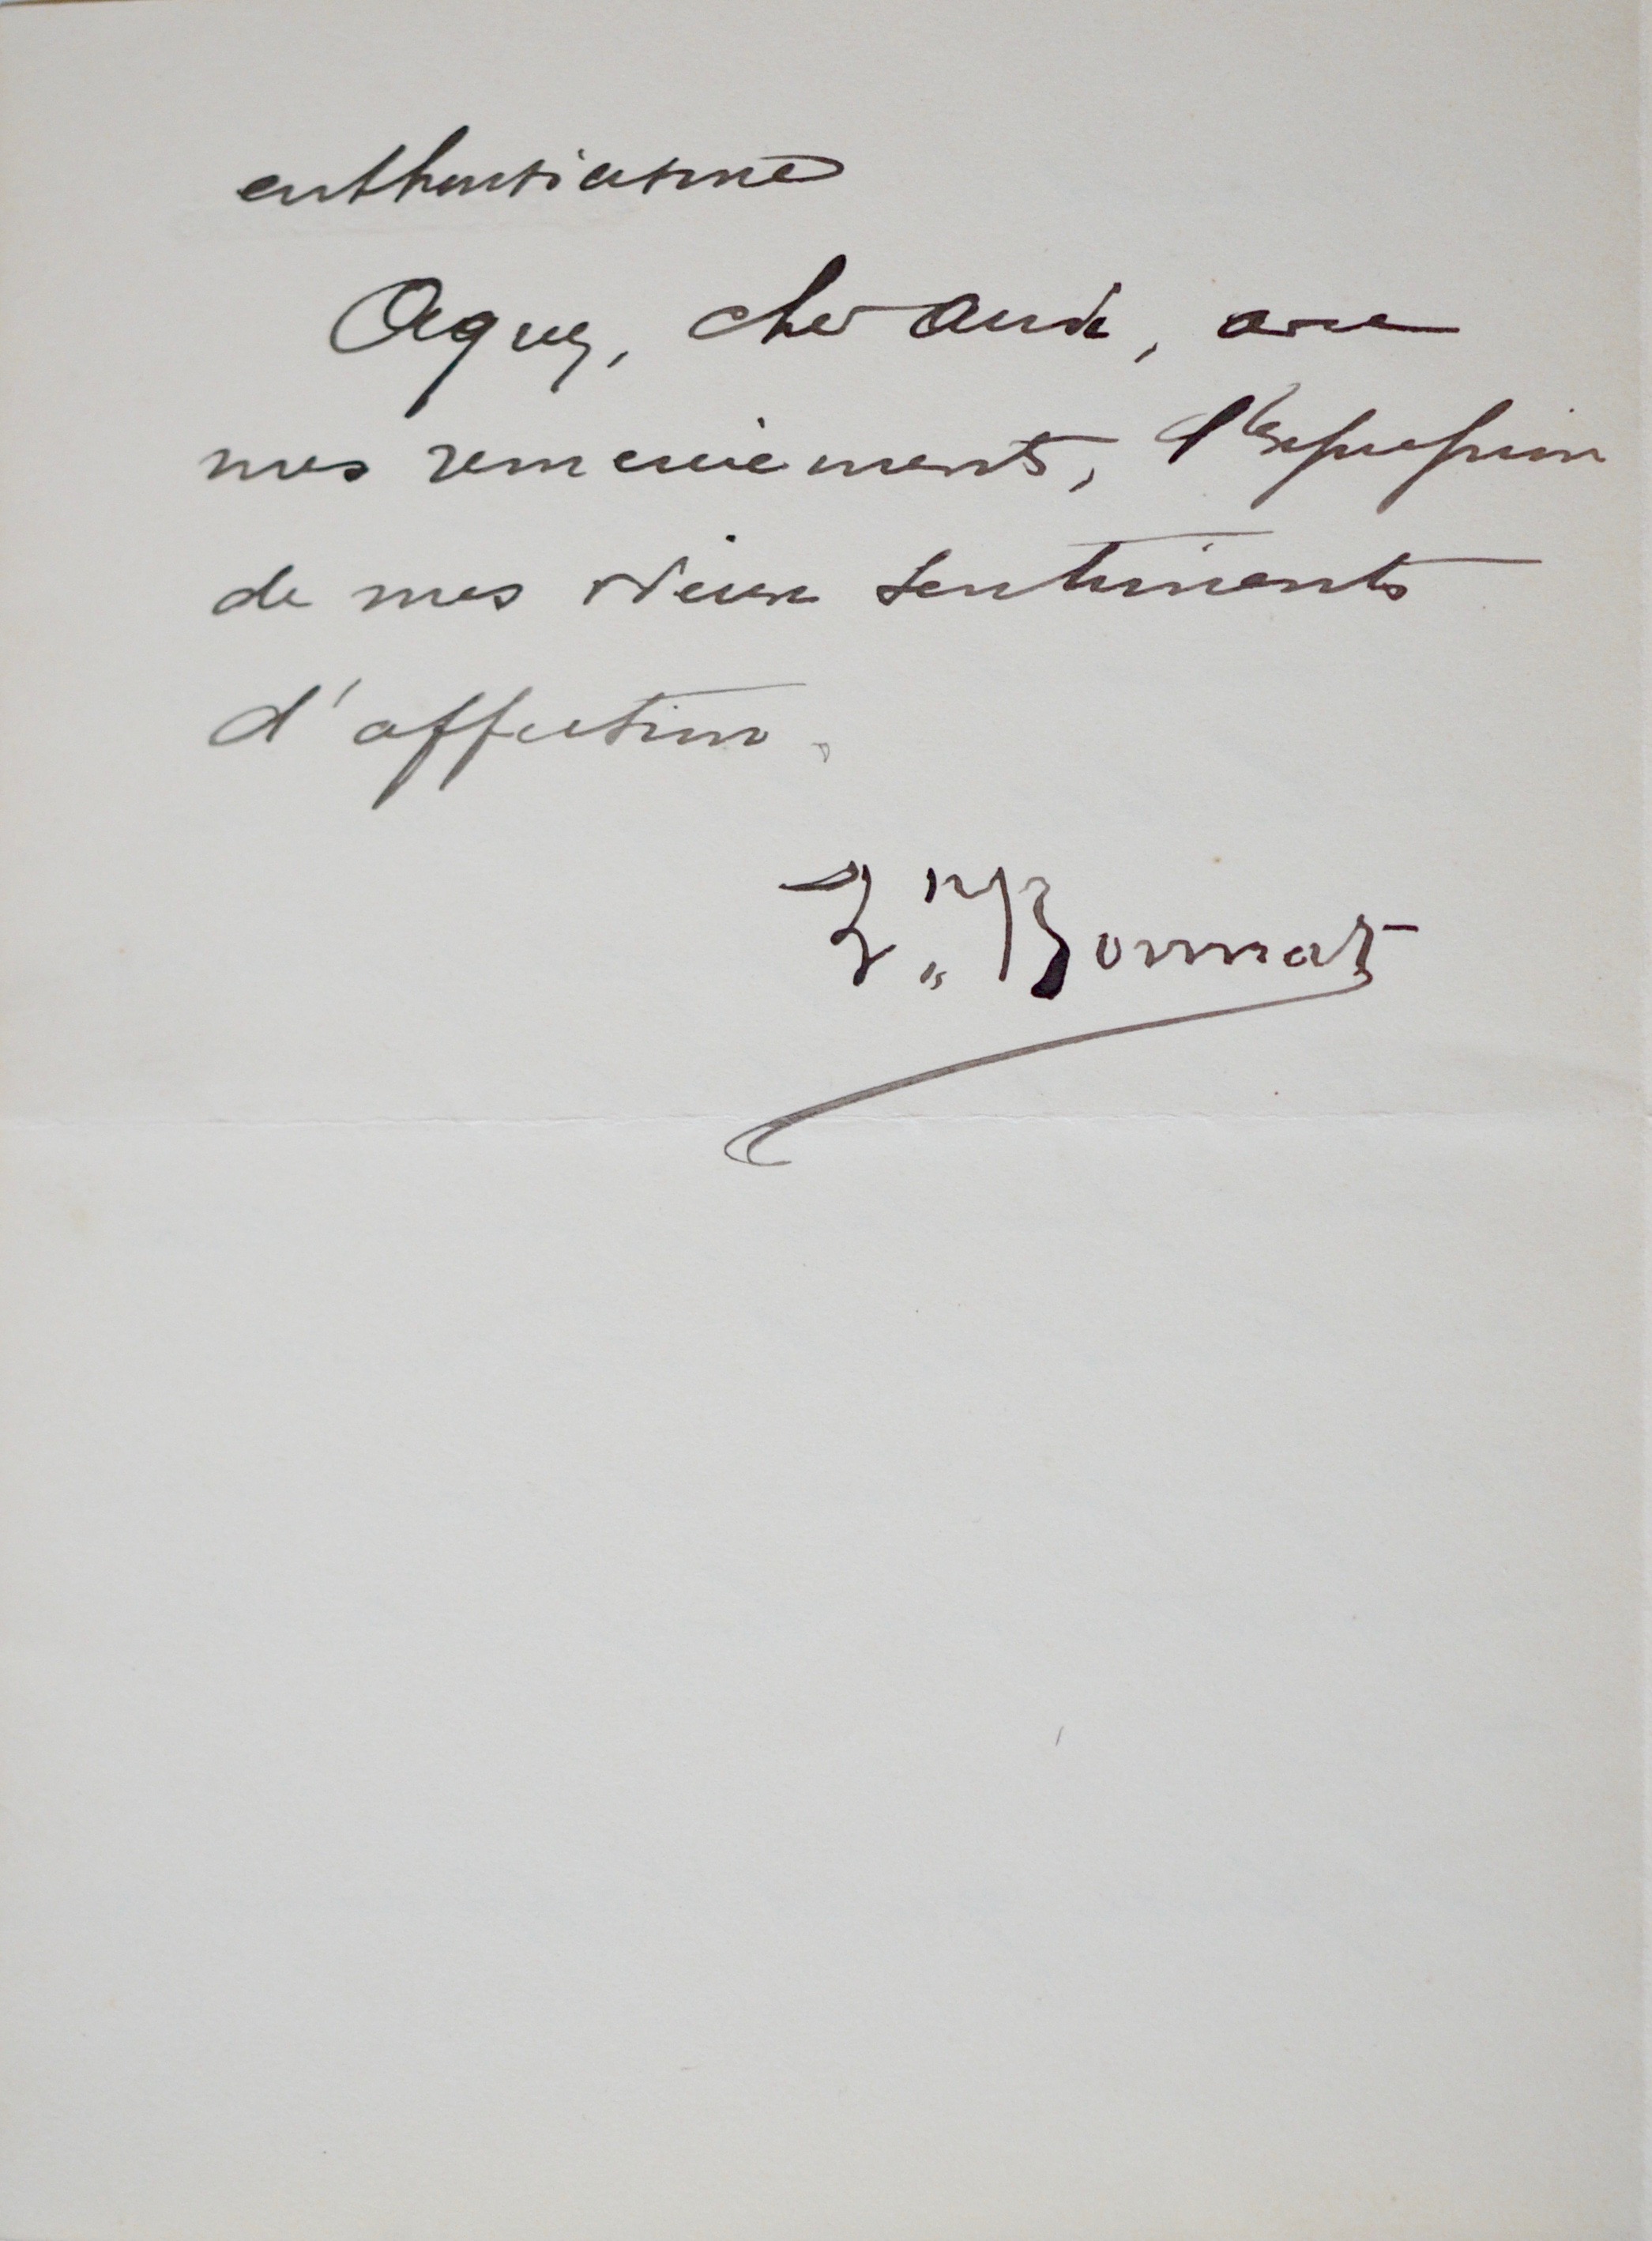 enthousiasme
Agréez, cher ami, avec
mes remerciements, l'expression
de mes vieux sentiments
d'affection.
Ln Bonnat